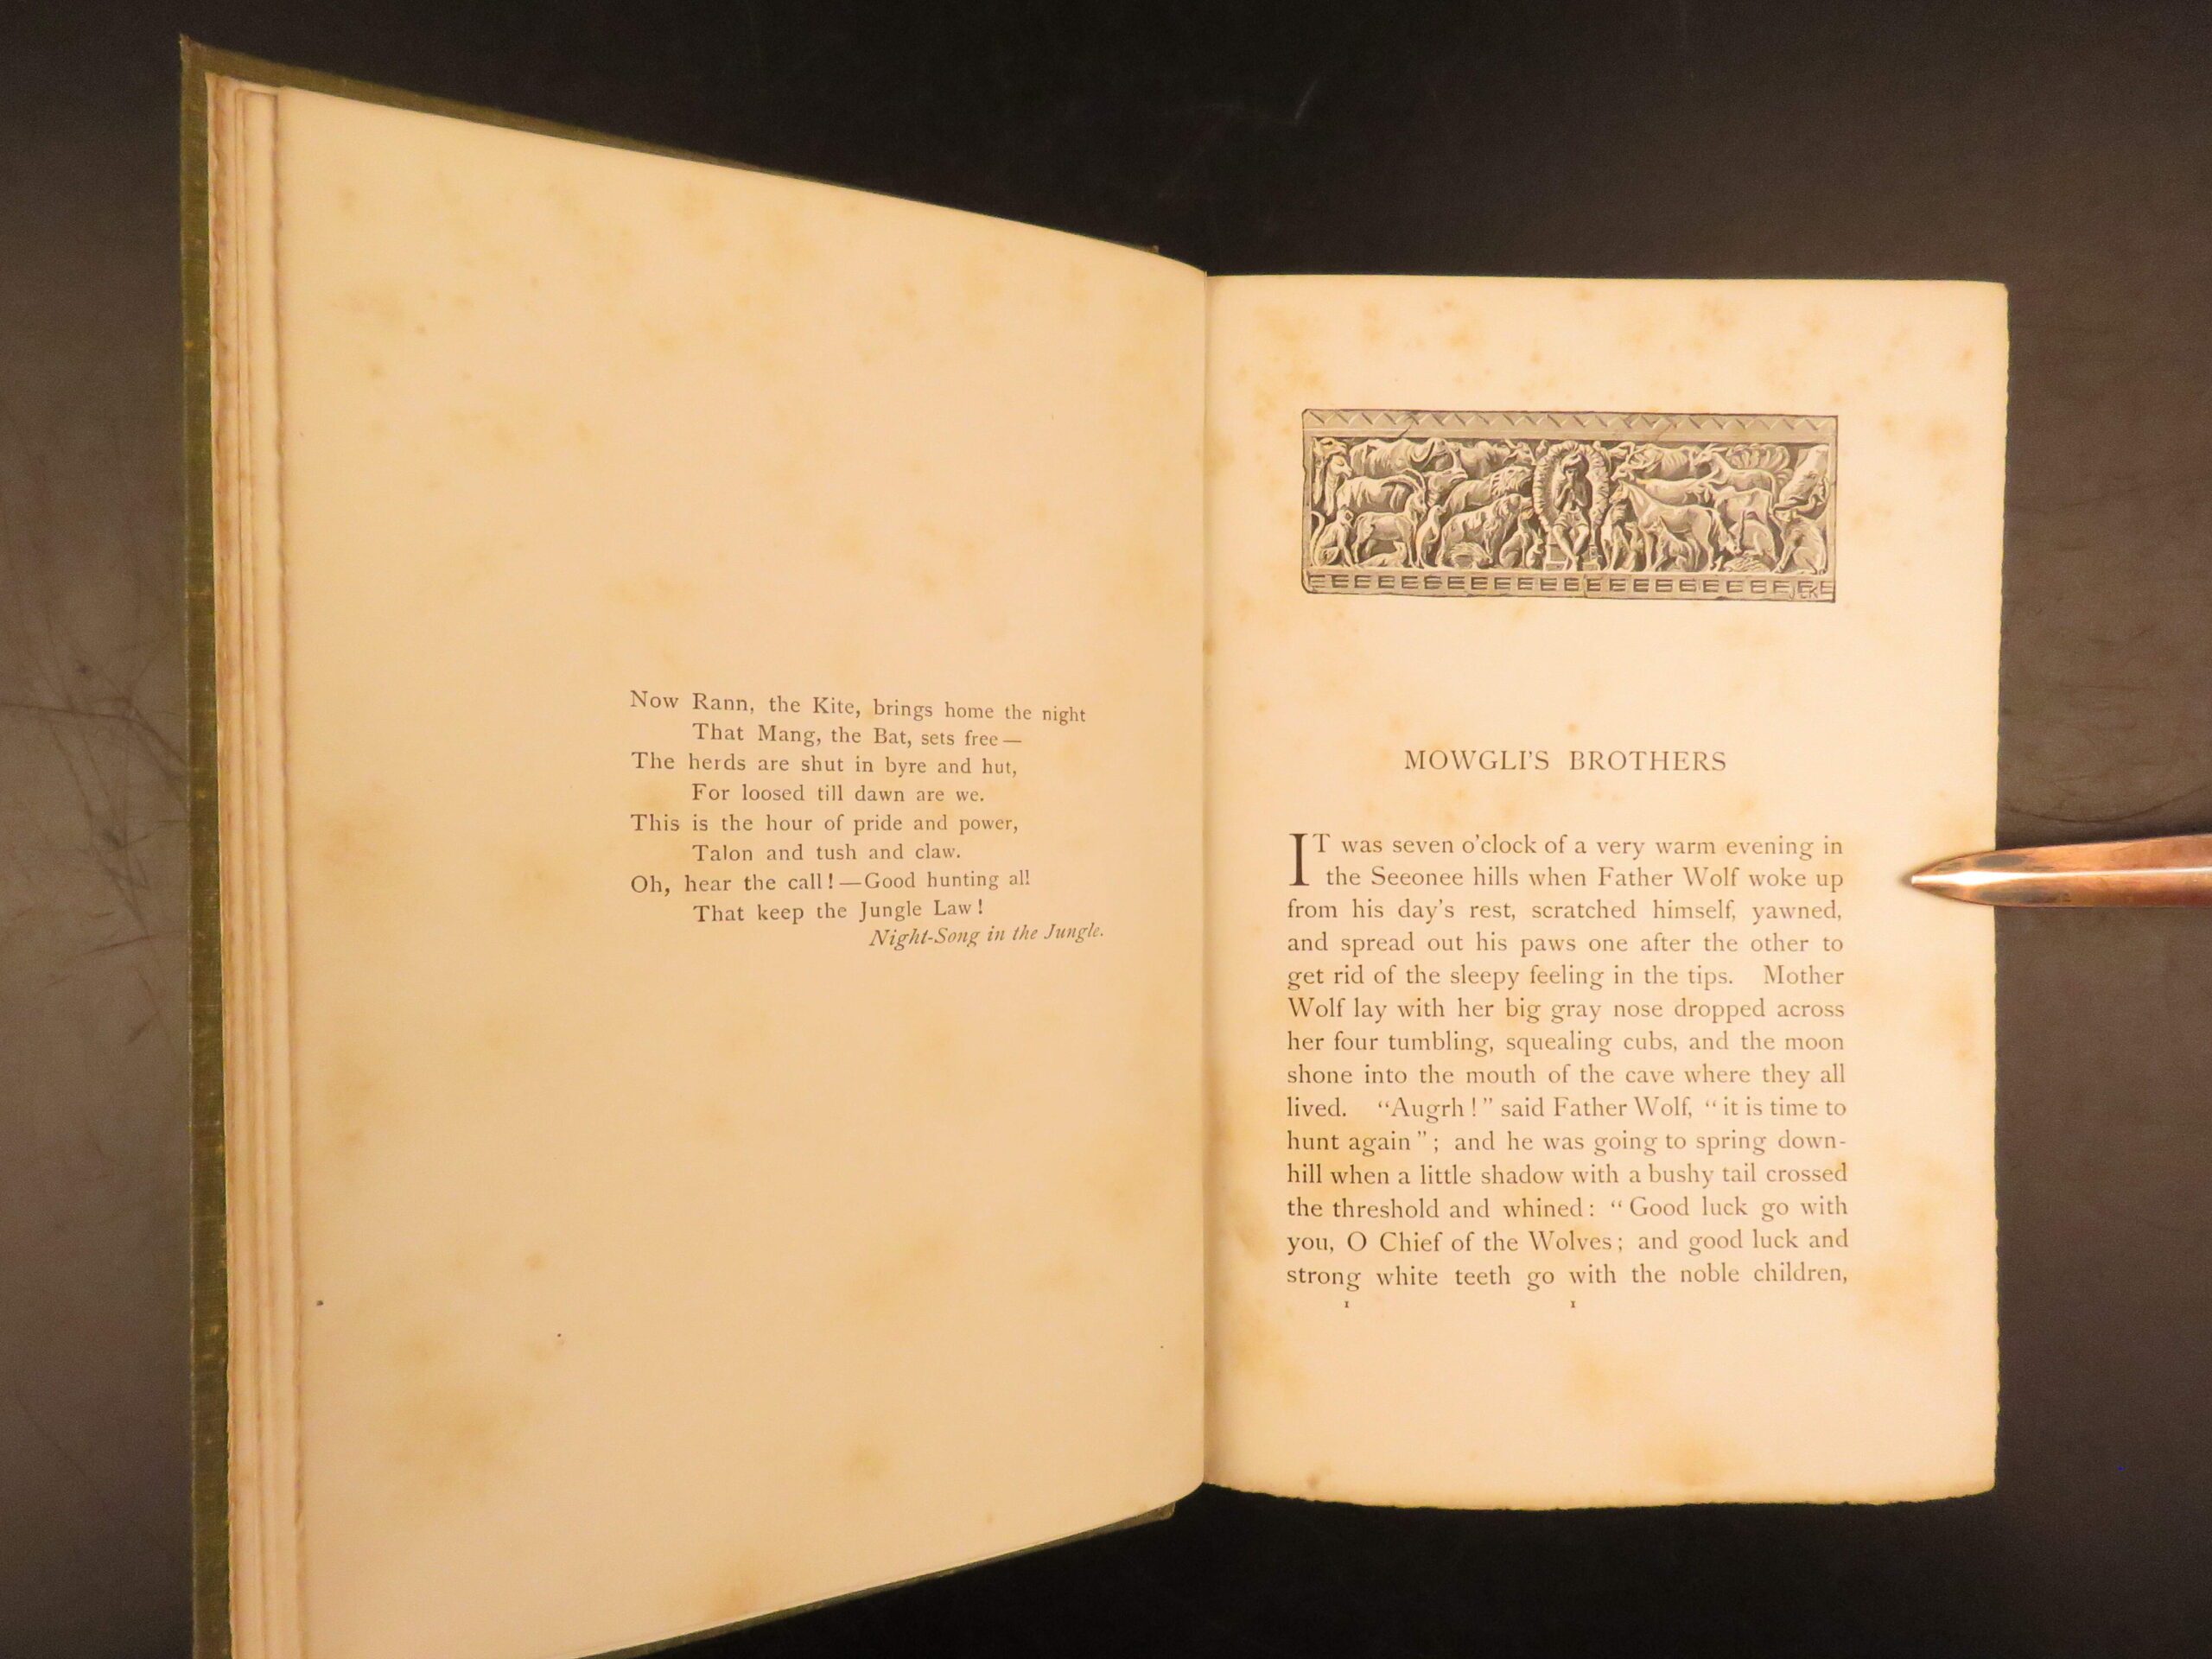 Now Rann, the Kite, brings home the night
That Mang, the Bat, sets free —
The herds are shut in byre and hut,
For loosed till dawn are we.
This is the hour of pride and power,
Talon and tush and claw.
Oh, hear the call! — Good hunting all
That keep the Jungle Law!
Night-Song in the Jungle.
JLK
MOWGLI'S BROTHERS
IT was seven o'clock of a very warm evening in
the Seeonee hills when Father Wolf woke up
from his day's rest, scratched himself, yawned,
and spread out his paws one after the other to
get rid of the sleepy feeling in the tips. Mother
Wolf lay with her big gray nose dropped across
her four tumbling, squealing cubs, and the moon
shone into the mouth of the cave where they all
lived. "Augrh!" said Father Wolf, "it is time to
hunt again"; and he was going to spring down-
hill when a little shadow with a bushy tail crossed
the threshold and whined: "Good luck go with
you, O Chief of the Wolves; and good luck and
strong white teeth go with the noble children,
1 1